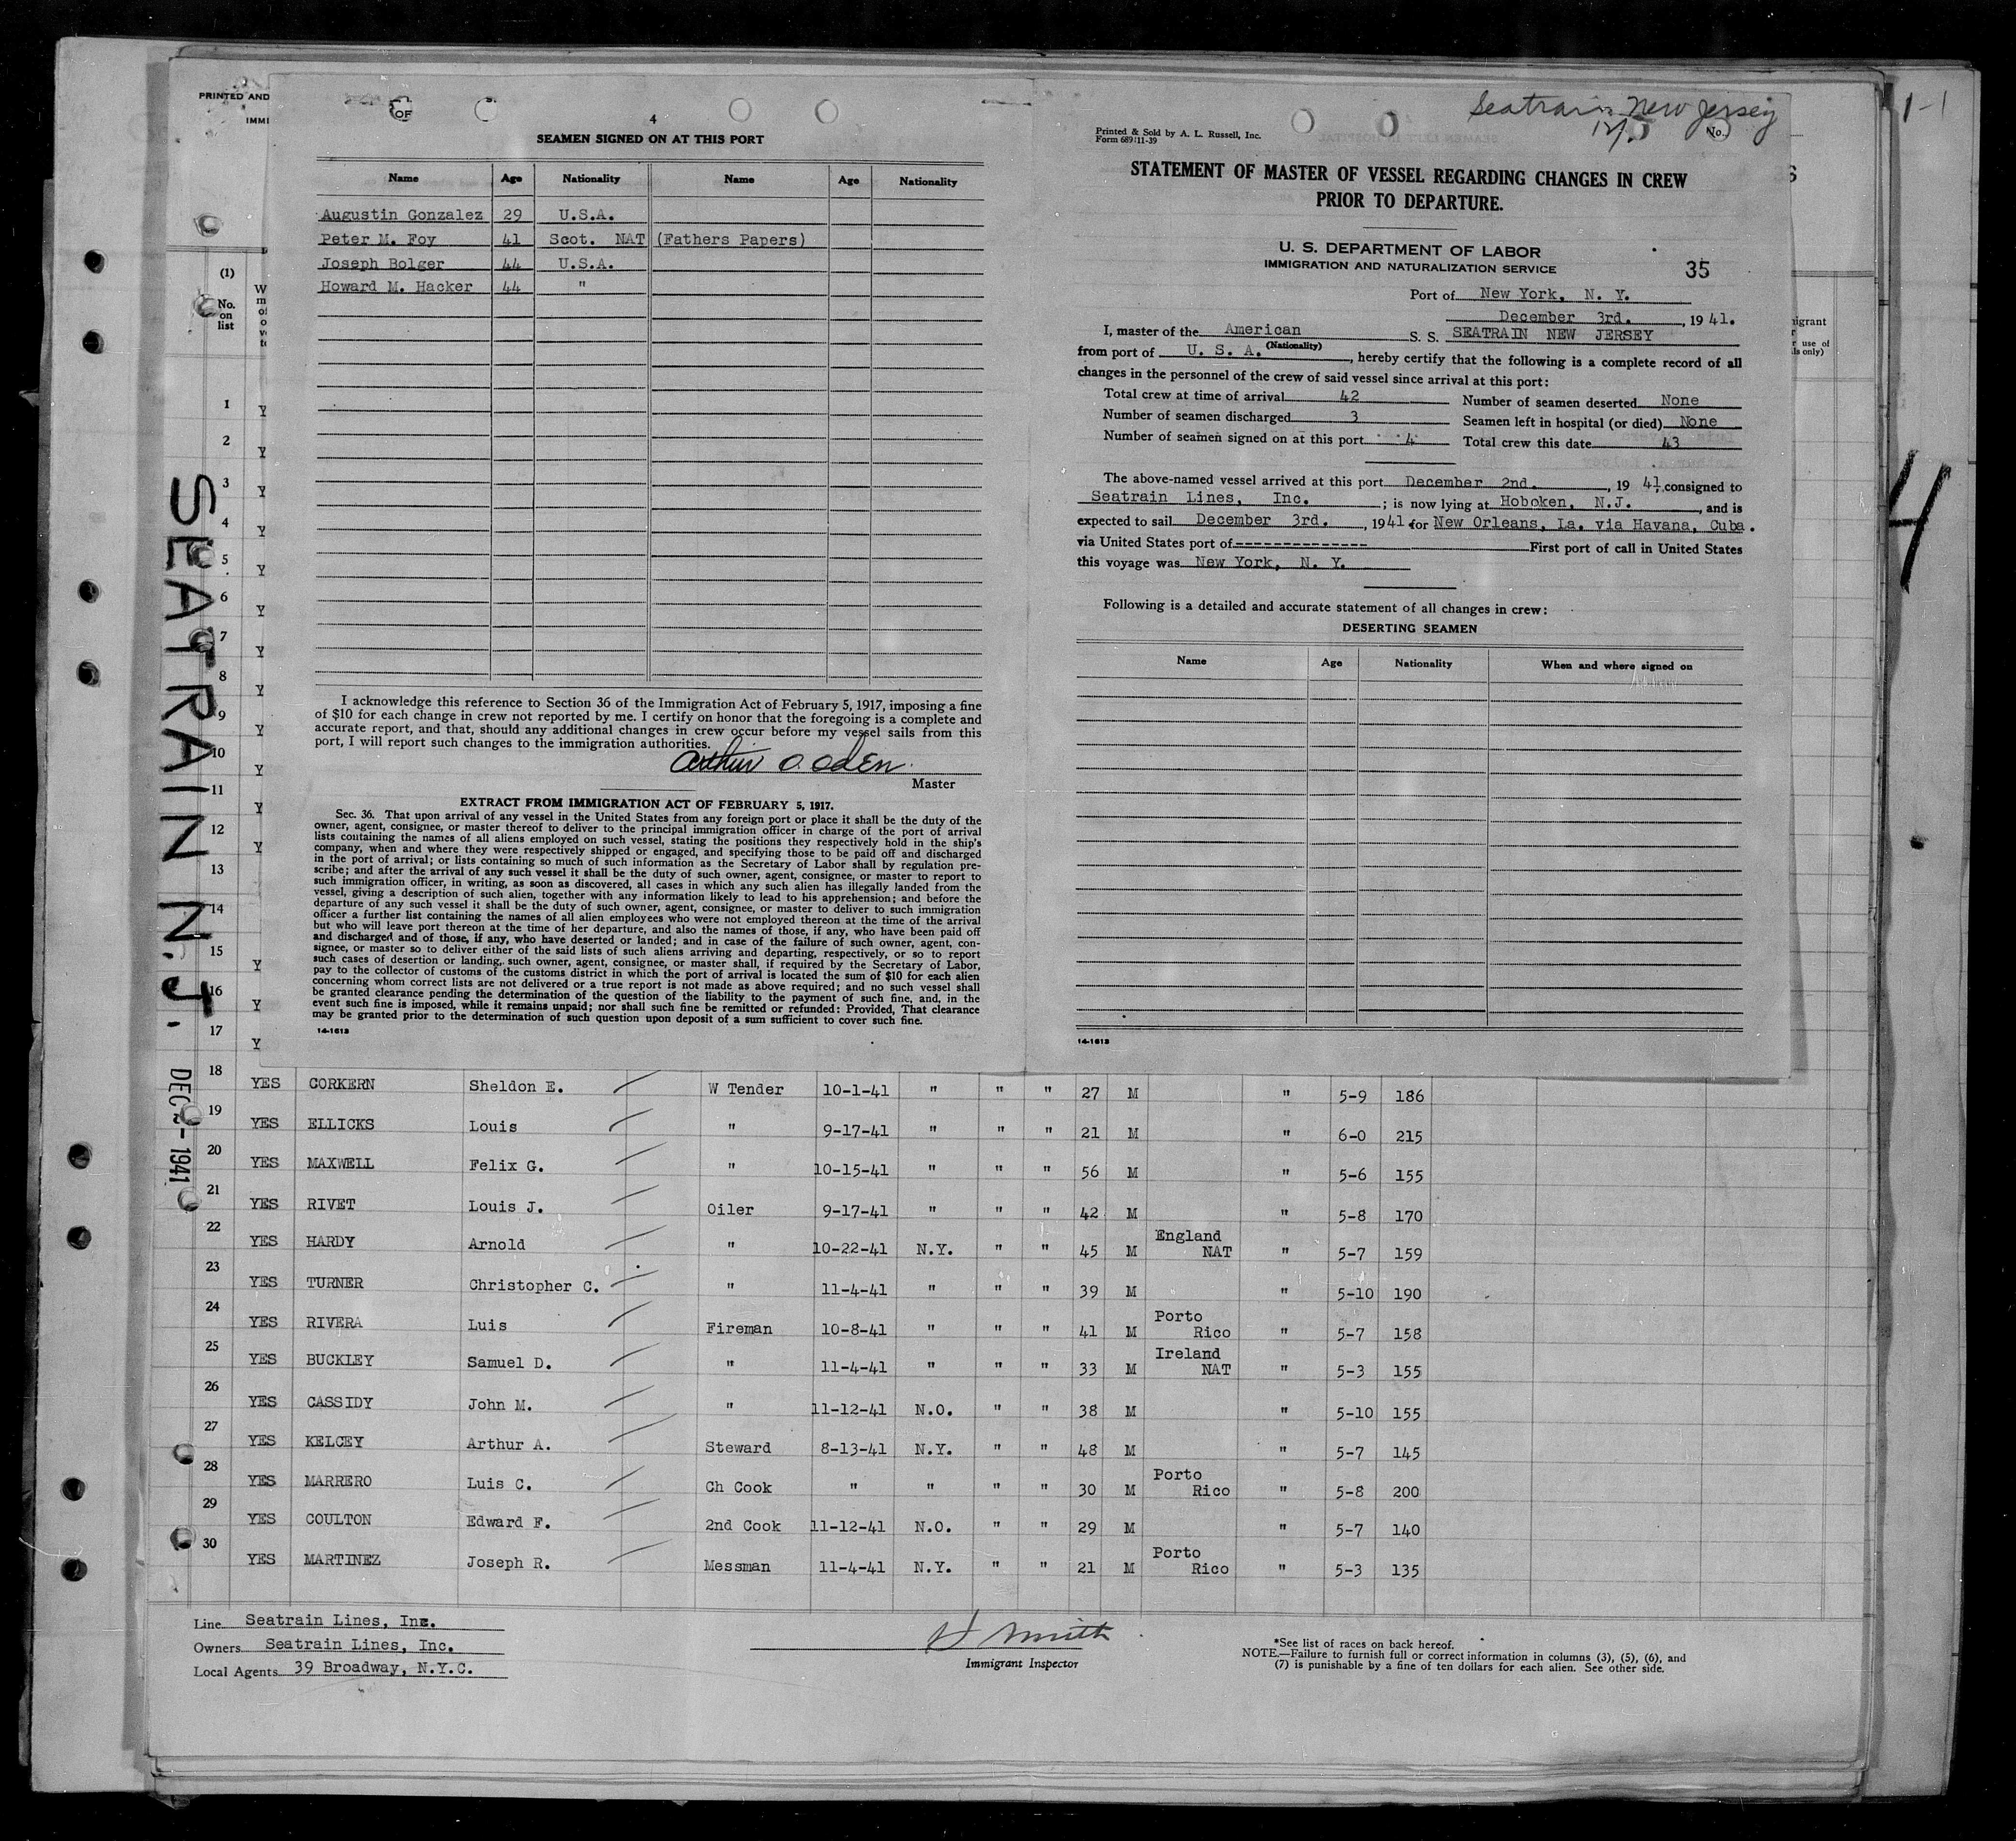 PRINTED AND
IMMI
OF
4
SEAMEN SIGNED ON AT THIS PORT
Name Age Nationality Name Age Nationality
Augustin Gonzalez 29 U.S.A.
Peter M. Foy 41 Scot. NAT (Fathers Papers)
Joseph Bolger 44 U.S.A.
Howard M. Hacker 44 "
I acknowledge this reference to Section 36 of the Immigration Act of February 5, 1917, imposing a fine
of $10 for each change in crew not reported by me. I certify on honor that the foregoing is a complete and
accurate report, and that, should any additional changes in crew occur before my vessel sails from this
port, I will report such changes to the immigration authorities.
Arthur O Oden
Master
EXTRACT FROM IMMIGRATION ACT OF FEBRUARY 5, 1917.
Sec. 36. That upon arrival of any vessel in the United States from any foreign port or place it shall be the duty of the
owner, agent, consignee, or master thereof to deliver to the principal immigration officer in charge of the port of arrival
lists containing the names of all aliens employed on such vessel, stating the positions they respectively hold in the ship's
company, when and where they were respectively shipped or engaged, and specifying those to be paid off and discharged
in the port of arrival; or lists containing so much of such information as the Secretary of Labor shall by regulation pre-
scribe; and after the arrival of any such vessel it shall be the duty of such owner, agent, consignee, or master to report to
such immigration officer, in writing, as soon as discovered, all cases in which any such alien has illegally landed from the
vessel, giving a description of such alien, together with any information likely to lead to his apprehension; and before the
departure of any such vessel it shall be the duty of such owner, agent, consignee, or master to deliver to such immigration
officer a further list containing the names of all alien employees who were not employed thereon at the time of the arrival
but who will leave port thereon at the time of her departure, and also the names of those, if any, who have been paid off
and discharged and of those, if any, who have deserted or landed; and in case of the failure of such owner, agent, con-
signee, or master so to deliver either of the said lists of such aliens arriving and departing, respectively, or so to report
such cases of desertion or landing, such owner, agent, consignee, or master shall, if required by the Secretary of Labor,
pay to the collector of customs of the customs district in which the port of arrival is located the sum of $10 for each alien
concerning whom correct lists are not delivered or a true report is not made as above required; and no such vessel shall
be granted clearance pending the determination of the question of the liability to the payment of such fine, and, in the
event such fine is imposed, while it remains unpaid; nor shall such fine be remitted or refunded: Provided, That clearance
may be granted prior to the determination of such question upon deposit of a sum sufficient to cover such fine.
14-1613
Seatrain New Jersey
Printed & Sold by A. L. Russell, Inc.
Form 689 11-39
No.
STATEMENT OF MASTER OF VESSEL REGARDING CHANGES IN CREW
PRIOR TO DEPARTURE.
U. S. DEPARTMENT OF LABOR
IMMIGRATION AND NATURALIZATION SERVICE
35
Port of New York, N. Y.
December 3rd., 1941.
I, master of the American S. S. SEATRAIN NEW JERSEY
(Nationality)
from port of U. S. A., hereby certify that the following is a complete record of all
changes in the personnel of the crew of said vessel since arrival at this port:
Total crew at time of arrival 42 Number of seamen deserted None
Number of seamen discharged 3 Seamen left in hospital (or died) None
Number of seamen signed on at this port 4 Total crew this date 43
The above-named vessel arrived at this port December 2nd., 1941, consigned to
Seatrain Lines, Inc.; is now lying at Hoboken, N.J., and is
expected to sail December 3rd., 1941 for New Orleans, La. via Havana, Cuba.
via United States port of -------------- First port of call in United States
this voyage was New York, N. Y.
Following is a detailed and accurate statement of all changes in crew:
DESERTING SEAMEN
Name Age Nationality When and where signed on
14-1613
1-1
4
SEATRAIN N.J.
DEC 2-1941
(1)
No.
on
list
1
2
3
4
5
6
7
8
9
10
11
12
13
14
15
16
17
18 YES CORKERN Sheldon E. W Tender 10-1-41 " " " 27 M " 5-9 186
19 YES ELLICKS Louis " 9-17-41 " " " 21 M " 6-0 215
20 YES MAXWELL Felix G. " 10-15-41 " " " 56 M " 5-6 155
21 YES RIVET Louis J. Oiler 9-17-41 " " " 42 M " 5-8 170
22 YES HARDY Arnold " 10-22-41 N.Y. " " 45 M England NAT " 5-7 159
23 YES TURNER Christopher C. " 11-4-41 " " " 39 M " 5-10 190
24 YES RIVERA Luis Fireman 10-8-41 " " " 41 M Porto Rico " 5-7 158
25 YES BUCKLEY Samuel D. " 11-4-41 " " " 33 M Ireland NAT " 5-3 155
26 YES CASSIDY John M. " 11-12-41 N.O. " " 38 M " 5-10 155
27 YES KELCEY Arthur A. Steward 8-13-41 N.Y. " " 48 M " 5-7 145
28 YES MARRERO Luis C. Ch Cook " " " " 30 M Porto Rico " 5-8 200
29 YES COULTON Edward F. 2nd Cook 11-12-41 N.O. " " 29 M " 5-7 140
30 YES MARTINEZ Joseph R. Messman 11-4-41 N.Y. " " 21 M Porto Rico " 5-3 135
Line Seatrain Lines, Inc.
Owners Seatrain Lines, Inc.
Local Agents 39 Broadway, N.Y.C.
H Smith
Immigrant Inspector
*See list of races on back hereof.
NOTE.—Failure to furnish full or correct information in columns (3), (5), (6), and
(7) is punishable by a fine of ten dollars for each alien. See other side.